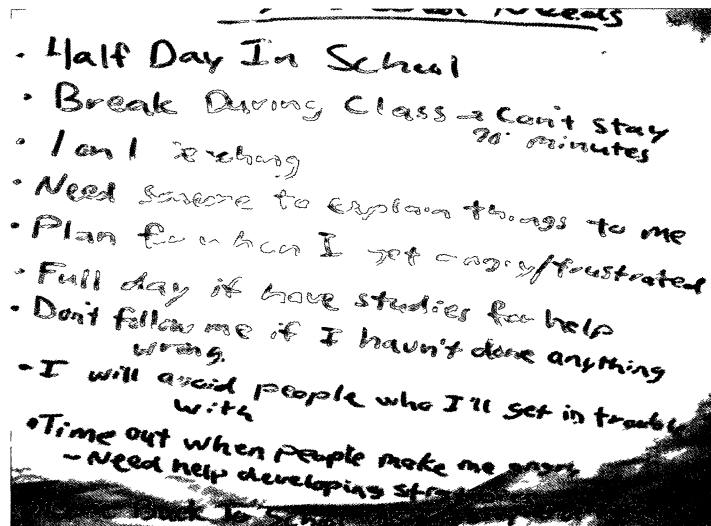 Needs
· Half Day In School
· Break During Class → Can't stay
90 minutes
· 1 on 1
· Need someone to explain things to me
· Plan for when I get angry/frustrated
· Full day if have studies for help
· Don't follow me if I havn't done anything
wrong.
· I will avoid people who I'll get in trouble
with
· Time out when people make me angry
- Need help developing
Back To